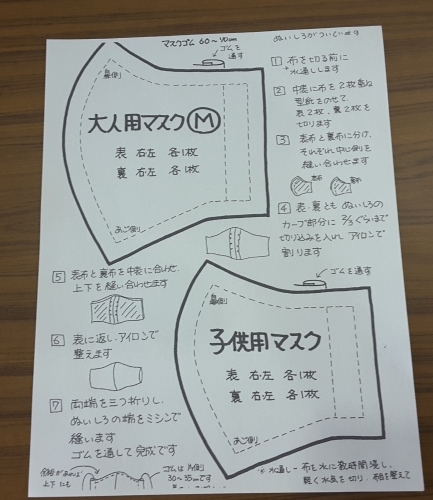 マスクゴム 60～70cm
ぬいしろがついています
ゴムを
通す
鼻側
大人用マスク Ⓜ
表 右左 各1枚
裏 右左 各1枚
あご側
1 布を切る前に
水通しします
2 中表に布を2枚重ね
型紙をのせて、
表2枚、裏2枚を
切ります
3 表布と裏布に分け、
それぞれ中心側を
縫い合わせます
表布
裏布
4 表・裏とも ぬいしろの
カーブ部分に 2/3ぐらいまで
切り込みを入れ アイロンで
割ります
5 表布と裏布を中表に合わせ、
上下を縫い合わせます
6 表に返し、アイロンで
整えます
7 両端を三つ折りし、
ぬいしろの端をミシンで
縫います
ゴムを通して完成です
上下にも
ゴムは片側
30～35cmです
ゴムを通す
鼻側
子供用マスク
表 右左 各1枚
裏 右左 各1枚
あご側
※ 水通し - 布を水に数時間浸し、
軽く水気を切り、布目を整えて